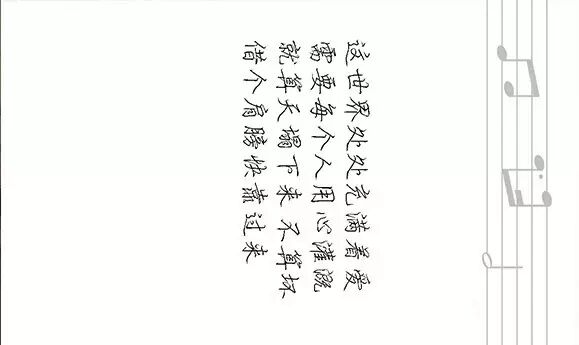 这世界处处充满着爱
需要每个人用心灌溉
就算天塌下来 不算坏
借个肩膀快靠过来